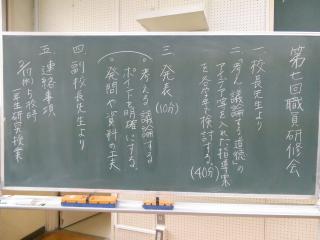 第七回職員研修会
一、校長先生より
二、「考え、議論する道徳」の
アイデア等を入れた指導案
を各学年で検討する。(40分)
三、発表(10分)
考える、議論する
ポイントを明確にする。
発問や資料の工夫
四、副校長先生より
五、連絡事項
5校時
一年生研究授業